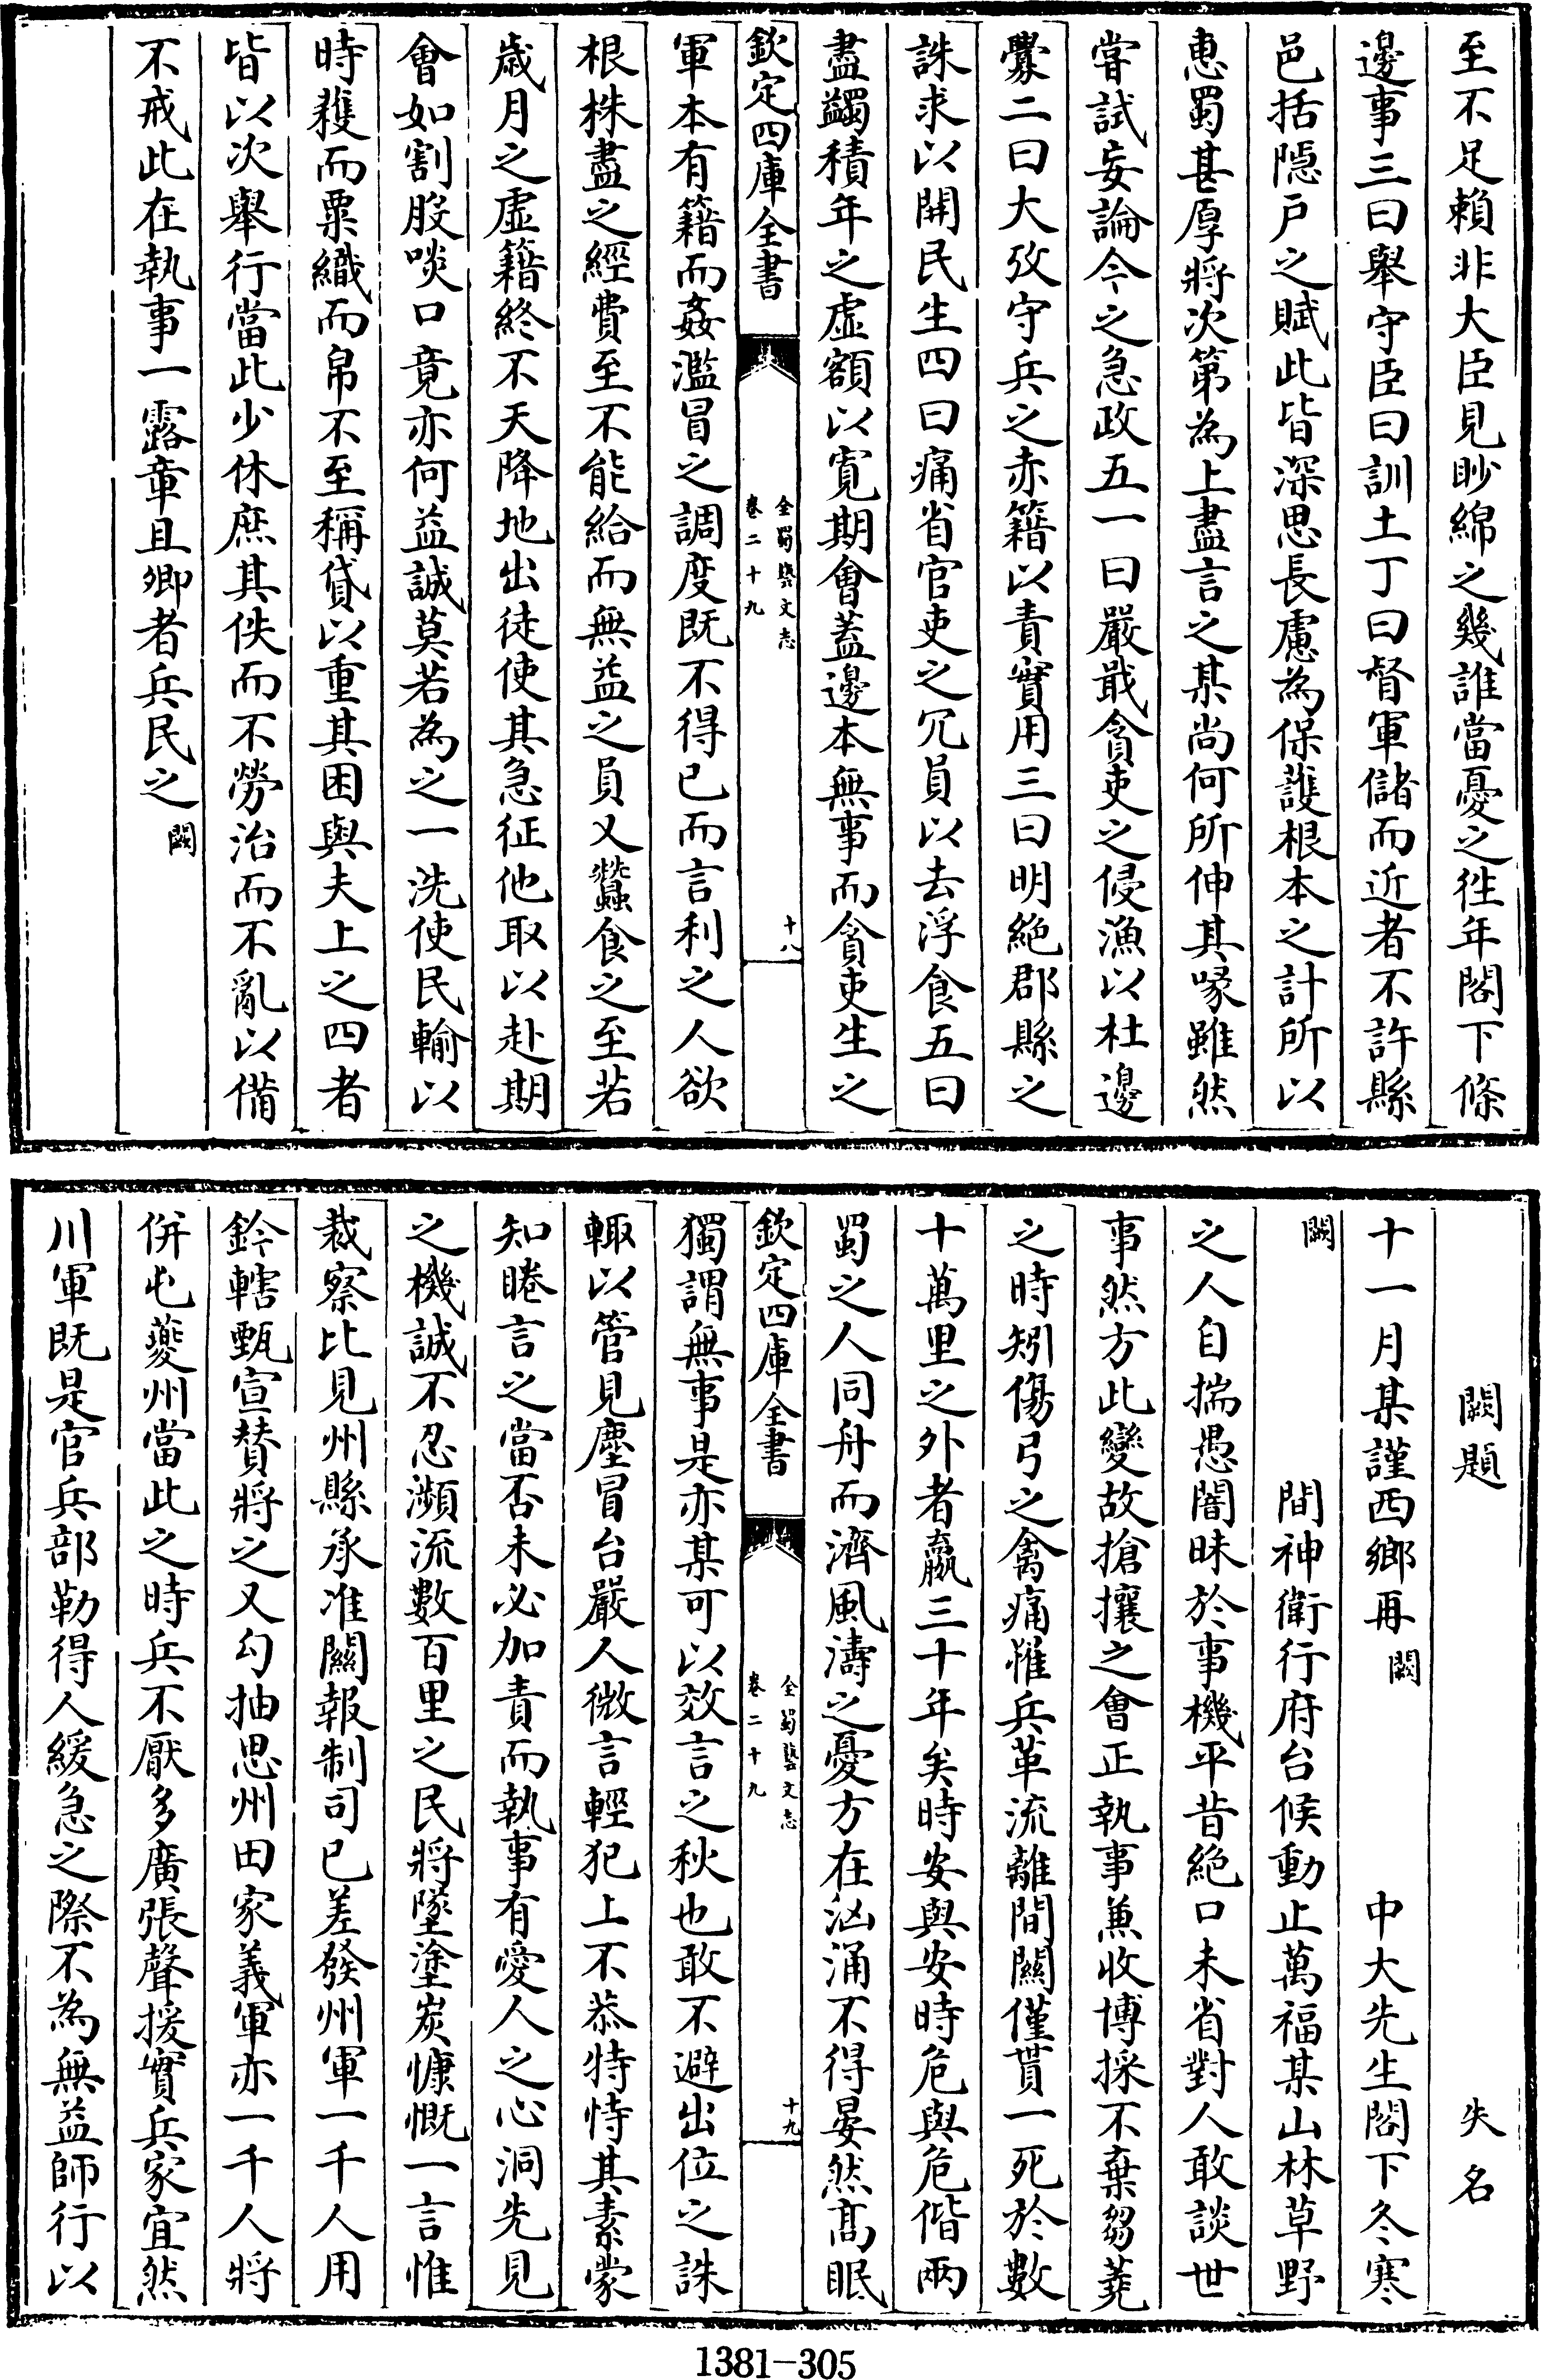 至不足賴非大臣見眇綿之幾誰當憂之徃年閣下條
邊事三曰舉守臣曰訓土丁曰督軍儲而近者不許縣
邑括隠戸之賦此皆深思長慮為保護根本之計所以
惠蜀甚厚將次第為上盡言之某尚何所伸其喙雖然
嘗試妄論今之急政五一曰嚴戢貪吏之侵漁以杜邊
釁二曰大攷守兵之赤籍以責實用三曰明絶郡縣之
誅求以開民生四曰痛省官吏之冗員以去浮食五曰
盡蠲積年之虚額以寛期會蓋邊本無事而貪吏生之
欽定四庫全書
全蜀藝文志
卷二十九
十八
軍本有籍而姦濫冒之調度既不得已而言利之人欲
根株盡之經費至不能給而無益之員又蠶食之至若
歲月之虚籍終不天降地出徒使其急征他取以赴期
會如割股啖口竟亦何益誠莫若為之一洗使民輸以
時穫而粟織而帛不至稱貸以重其困與夫上之四者
皆以次舉行當此少休庶其佚而不勞治而不亂以備
不戒此在執事一露章且卿者兵民之闕
闕題
失名
十一月某謹西鄉再闕 中大先生閣下冬寒
闕 間神衛行府台候動止萬福某山林草野
之人自揣愚闇昧於事機平昔絶口未省對人敢談世
事然方此變故搶攘之會正執事兼收博採不棄芻蕘
之時矧傷弓之禽痛罹兵革流離間關僅貰一死於數
十萬里之外者贏三十年矣時安與安時危與危偕兩
蜀之人同舟而濟風濤之憂方在洶涌不得晏然髙眠
欽定四庫全書
全蜀藝文志
卷二十九
十九
獨謂無事是亦某可以效言之秋也敢不避出位之誅
輙以管見塵冒台嚴人微言輕犯上不恭特恃其素蒙
知睠言之當否未必加責而執事有愛人之心洞先見
之機誠不忍瀕流數百里之民將墜塗炭慷慨一言惟
裁察比見州縣承准關報制司已差發州軍一千人用
鈐轄甄宣賛將之又勾抽思州田家義軍亦一千人將
併屯夔州當此之時兵不厭多廣張聲援實兵家宜然
川軍既是官兵部勒得人緩急之際不為無益師行以
1381-305